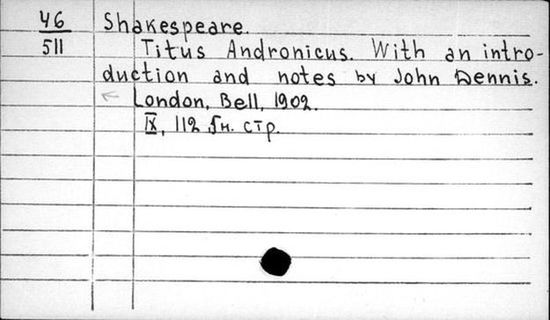 46
511
Shakespeare.
Titus Andronicus. With an intro-
duction and notes by John Dennis.
London, Bell, 1902.
IX, 112 стр.